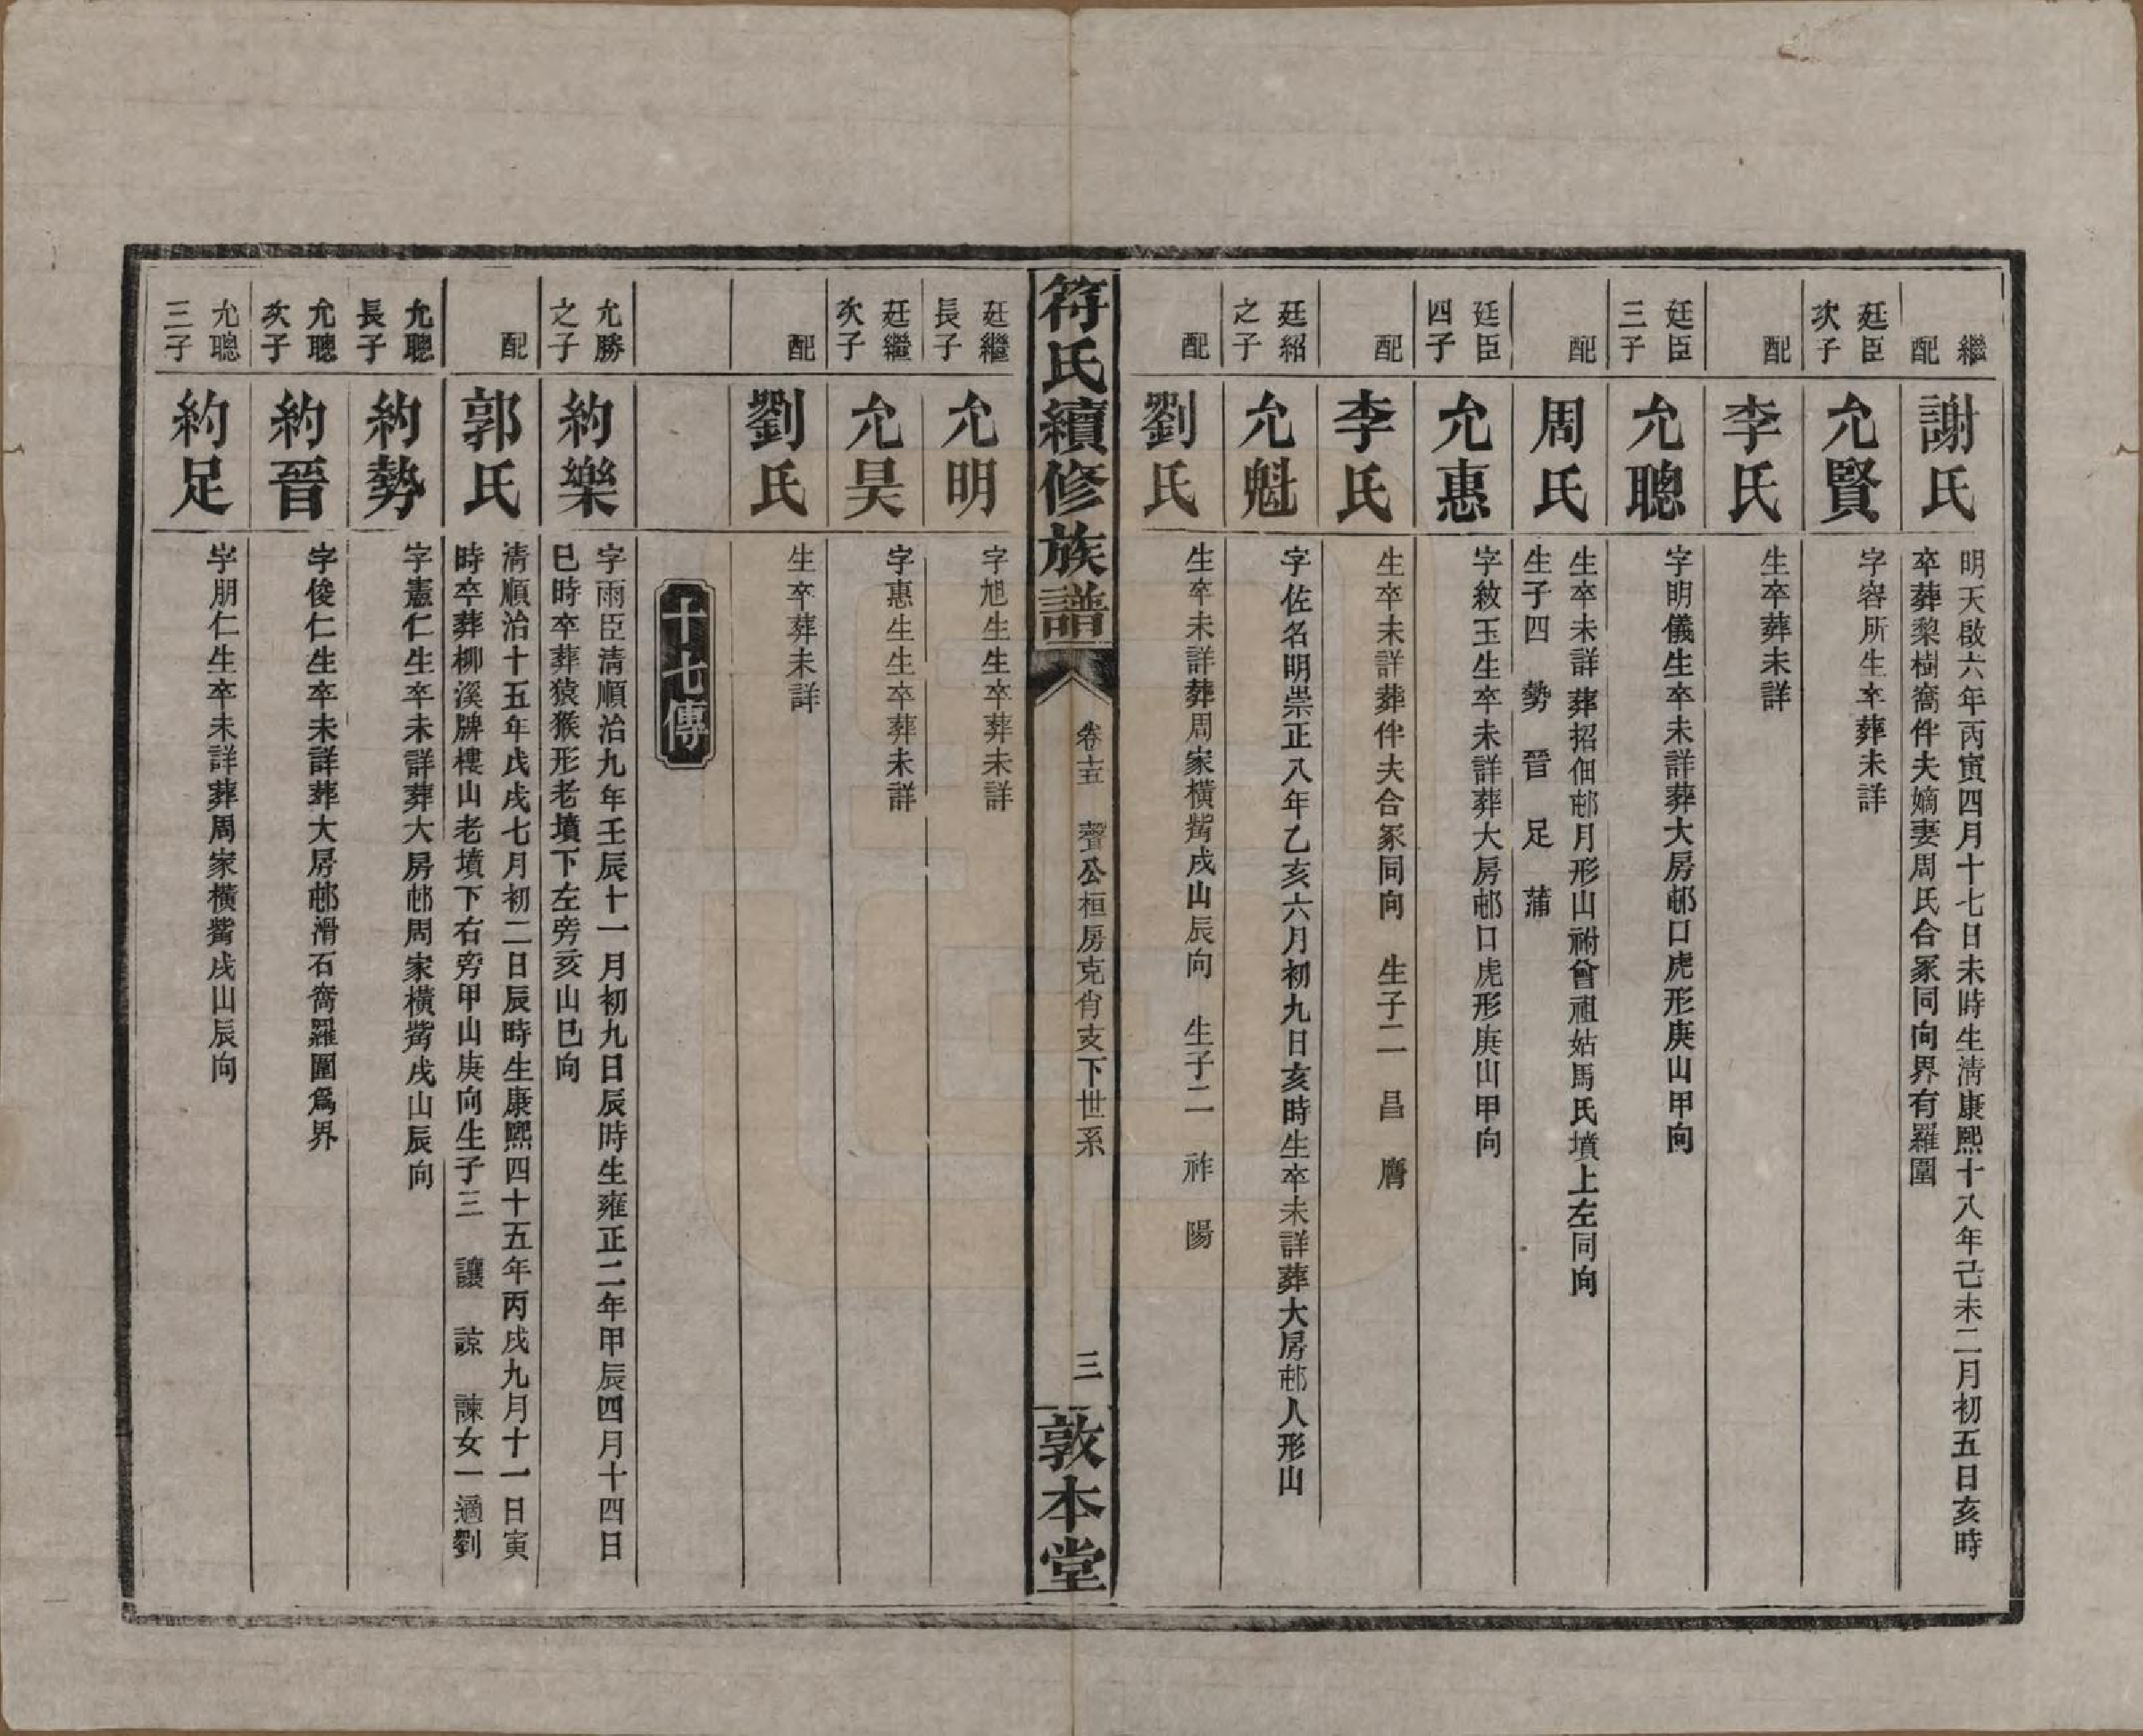 繼配
謝氏
明天啟六年丙寅四月十七日未時生淸康熙十八年己未二月初五日亥時
卒葬黎樹窩伴夫嫡妻周氏合冢同向界有羅圍
廷臣次子
允賢
字容所生卒葬未詳
配
李氏
生卒葬未詳
廷臣三子
允聰
字明儀生卒未詳葬大房邨口虎形庚山甲向
配
周氏
生卒未詳葬招佃邨月形山祔曾祖姑馬氏墳上左同向
生子四 勢 晉 足 蒲
廷臣四子
允惠
字敘玉生卒未詳葬大房邨口虎形庚山甲向
配
李氏
生卒未詳葬伴夫合冢同向 生子二 昌 膺
廷紹之子
允魁
字佐名明崇正八年乙亥六月初九日亥時生卒未詳葬大房邨人形山
配
劉氏
生卒未詳葬周家橫嘴戌山辰向 生子二 祚 陽
符氏續修族譜
卷十五 聲公桓房克肖支下世系
三
敦本堂
廷繼長子
允明
字旭生生卒葬未詳
廷繼次子
允昊
字惠生生卒葬未詳
配
劉氏
生卒葬未詳
十七傳
允勝之子
約樂
字雨臣淸順治九年壬辰十一月初九日辰時生雍正二年甲辰四月十四日
巳時卒葬猿猴形老墳下左旁亥山巳向
配
郭氏
淸順治十五年戊戌七月初二日辰時生康熙四十五年丙戌九月十一日寅
時卒葬柳溪牌樓山老墳下右旁甲山庚向生子三 讓 諒 諫女一適劉
允聰長子
約勢
字憲仁生卒未詳葬大房邨周家橫嘴戌山辰向
允聰次子
約晉
字俊仁生卒未詳葬大房邨滑石窩羅圍爲界
允聰三子
約足
字朋仁生卒未詳葬周家橫嘴戌山辰向